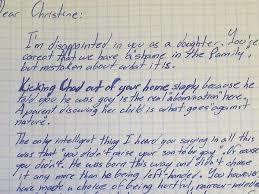 Dear Christine:
I'm disappointed in you as a daughter. You're
correct that we have "a shame in the family",
but mistaken about what it is.
Kicking Chad out of your home simply because he
told you he was gay is the real "abomination" here.
A parent disowning her child is what goes "against
nature".
The only intelligent thing I heard you saying in all this
was that "you didn't raise your son to be gay". Of course
you didn't. He was born this way and didn't choose
it any more than he being left-handed. You however,
have made a choice of being hurtful, narrow-minded